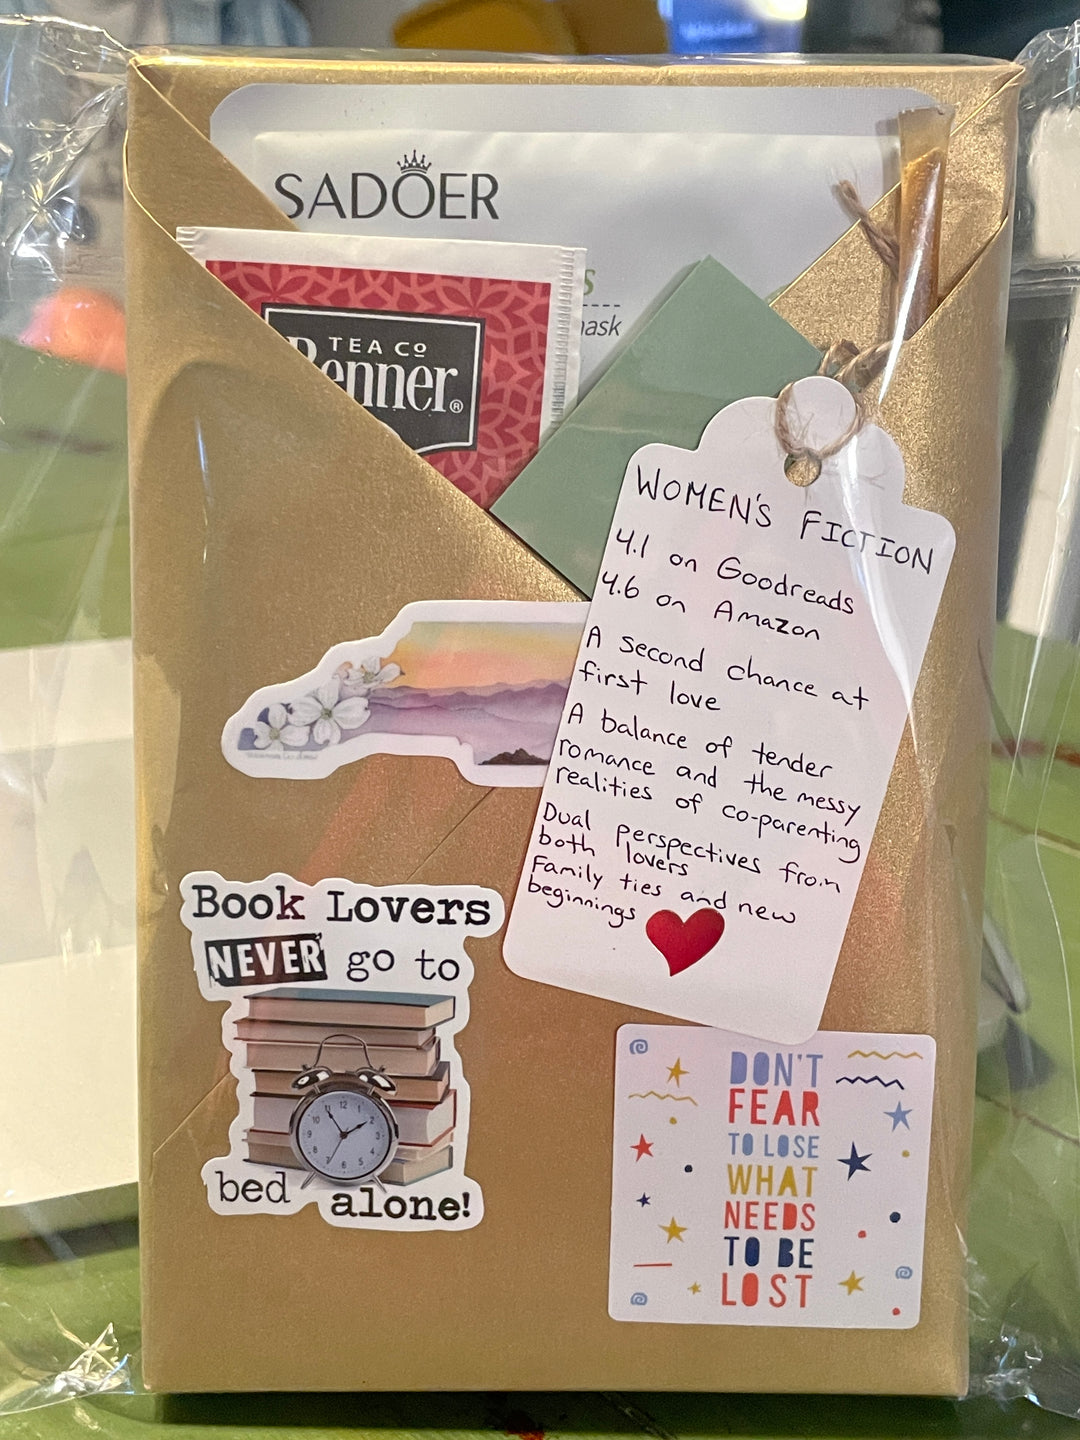 SADOER
mask
TEA Co
Benner®
WOMEN'S FICTION
4.1 on Goodreads
4.6 on Amazon
A second chance at
first love
A balance of tender
romance and the messy
realities of co-parenting
Dual perspectives from
both lovers
Family ties and new
beginnings
Book Lovers
NEVER go to
bed alone!
12
1
2
3
4
5
6
7
8
9
10
11
DON'T
FEAR
TO LOSE
WHAT
NEEDS
TO BE
LOST